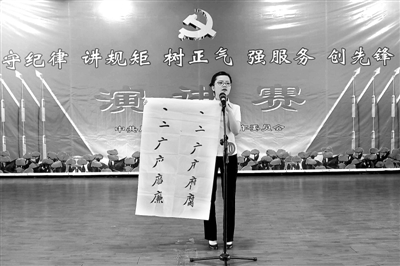 守纪律 讲规矩 树正气 强服务 创先锋
演讲赛
中共 委员会
、二广府腐
、二广产廉